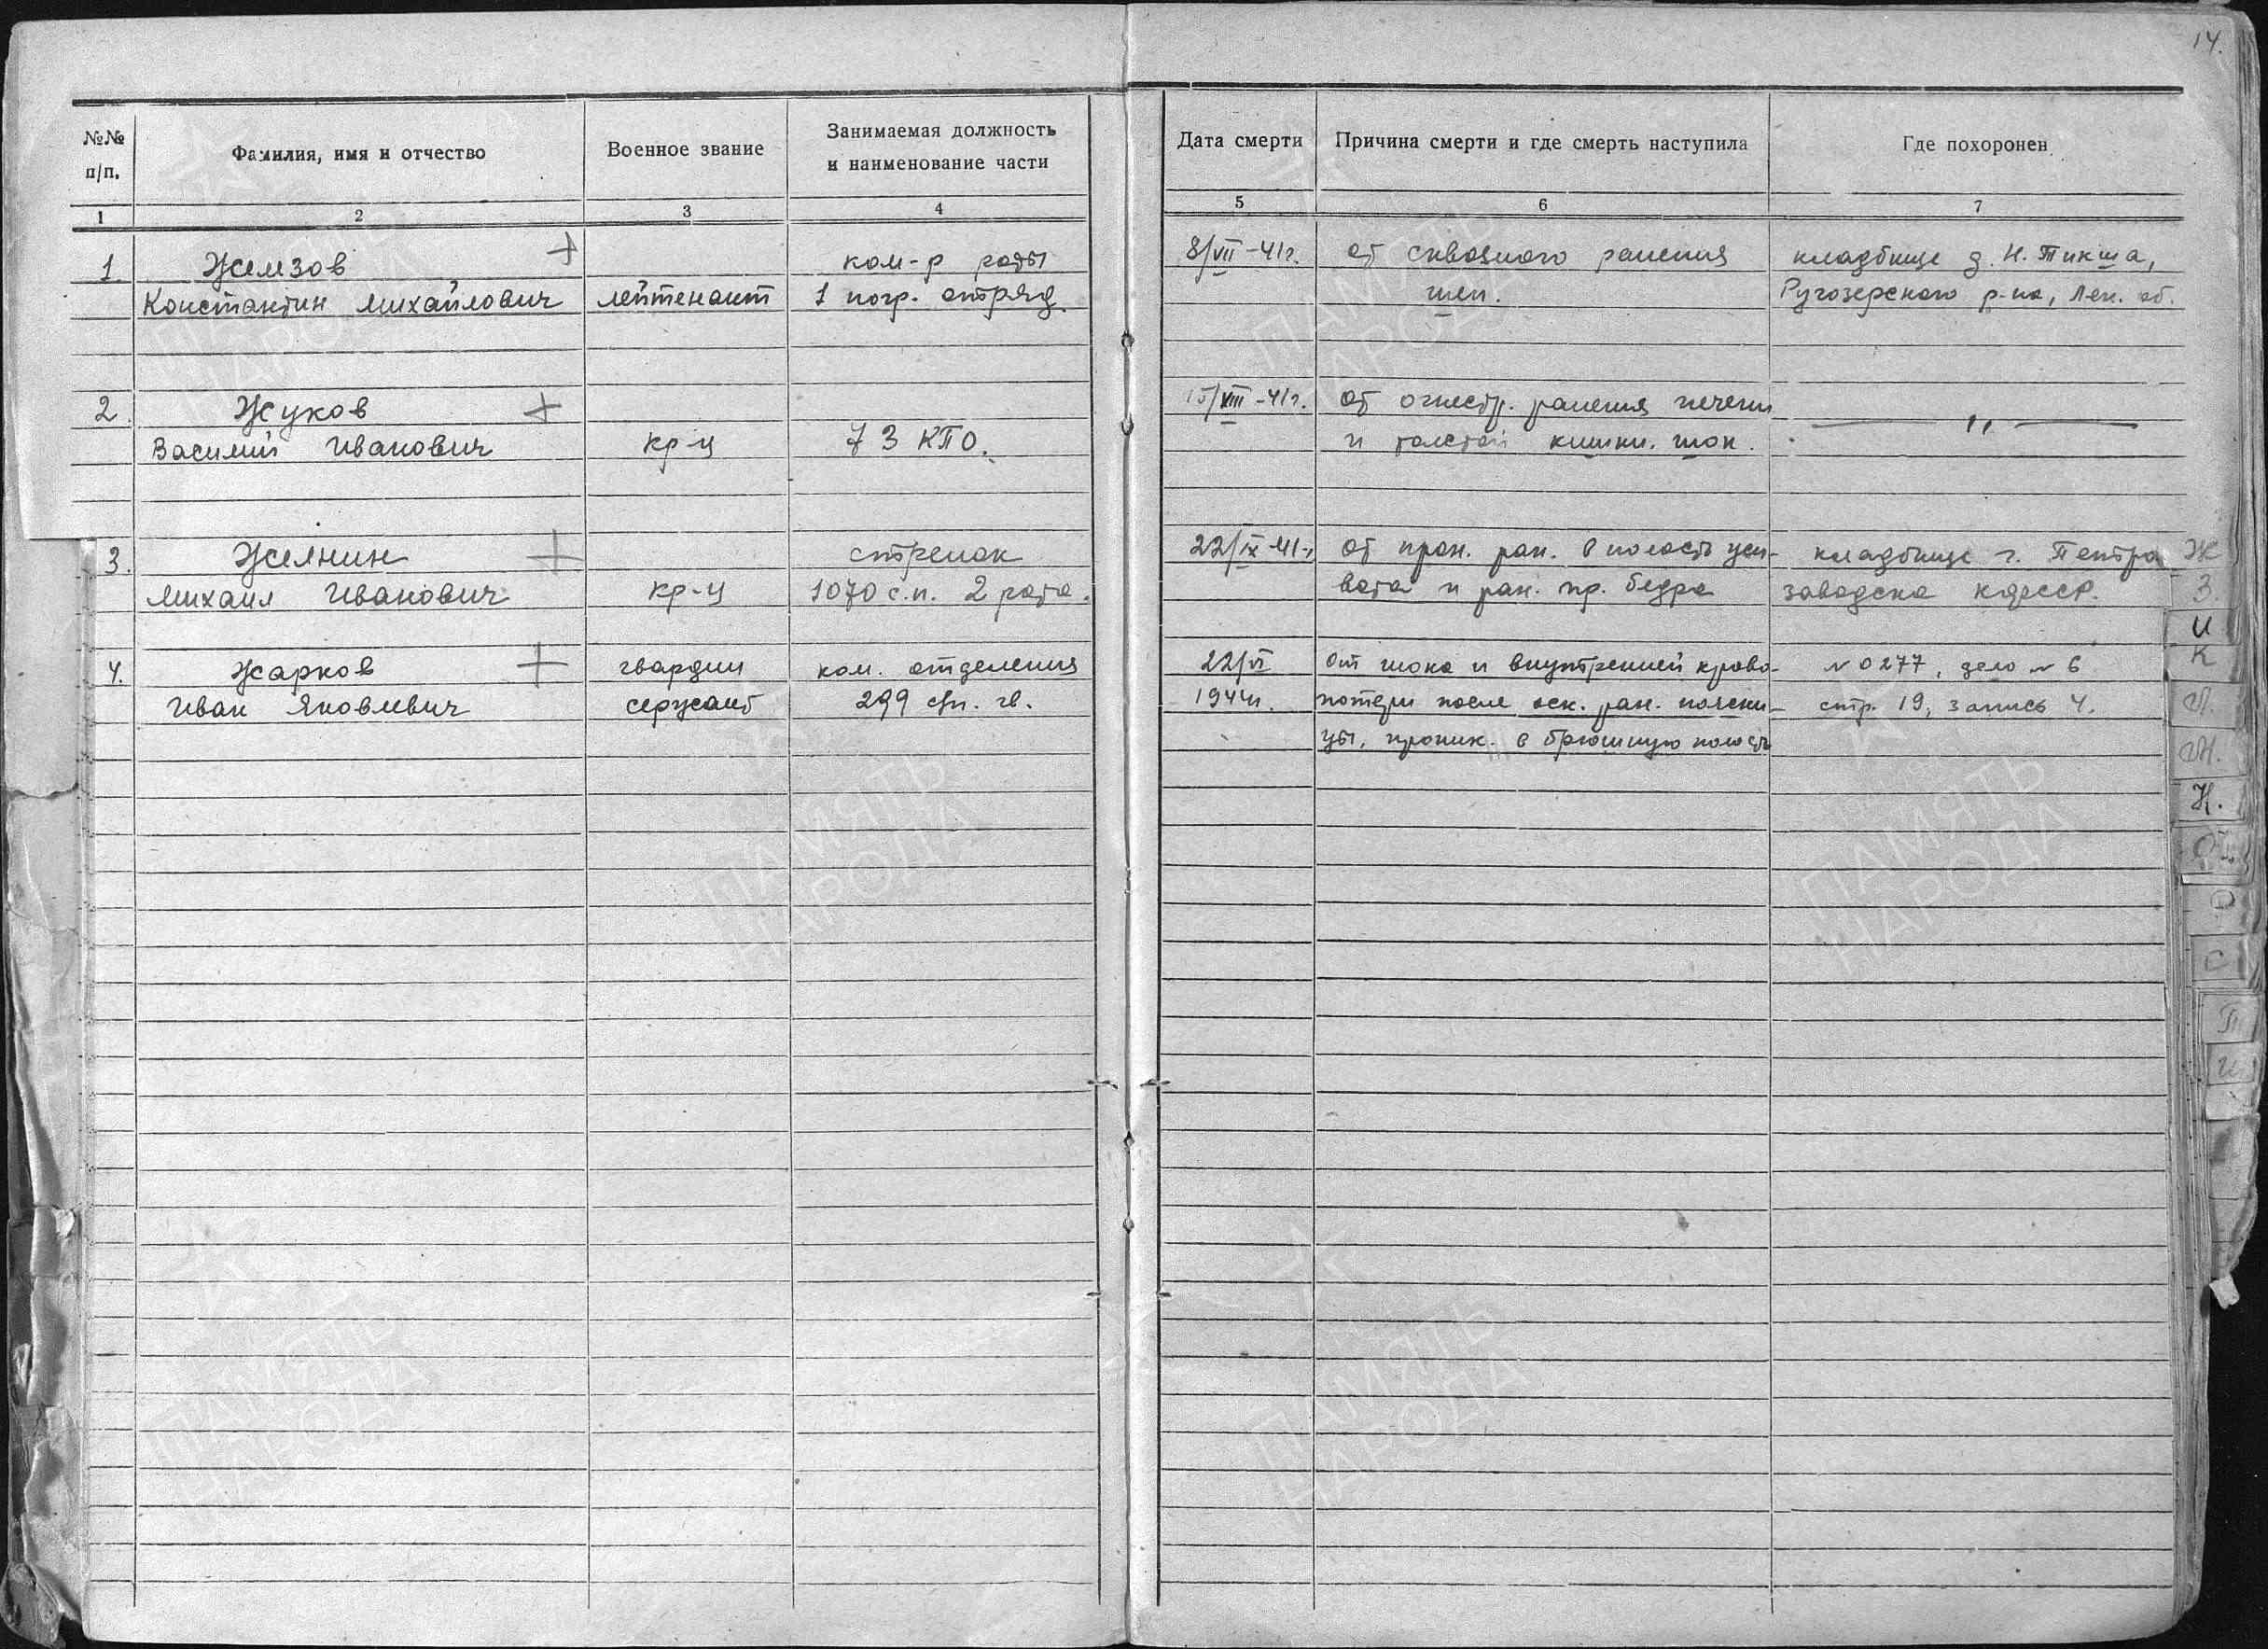 14.
№№ п/п.
Фамилия, имя и отчество
Военное звание
Занимаемая должность и наименование части
Дата смерти
Причина смерти и где смерть наступила
Где похоронен
1 2 3 4 5 6 7
1. Жемзов + ком-р роты 8/VII-41г. от сквозного ранения кладбище д. Н. Тикша,
Константин Михайлович лейтенант 1 погр. отряд. шеи. Ругозерского р-на, Лен. об.
2. Жуков + 15/VIII-41г. от огнестр. ранения печени — ,, —
Василий Иванович кр-ц 73 КПО. и толстой кишки. шок.
3. Желнин + стрелок 22/IX-41г. от прон. ран. в полость кладбище г. Петро
Михаил Иванович кр-ц 1070 с.п. 2 рота. вота и ран. пр. бедра заводска КФССР.
4. Жарков + гвардии ком. отделения 22/VI От шока и внутренней крово- № 0277, дело № 6
Иван Яковлевич сержант 299 сп. гв. 1944г. потери после оск. ран. поясни- стр. 19, запись 4.
цы, проник. в брюшную полость
Ж
З.
И
К
Л.
М.
Н.
О
Р
С
Т
ПАМЯТЬ
НАРОДА
ПАМЯТЬ
НАРОДА
ПАМЯТЬ
НАРОДА
ПАМЯТЬ
НАРОДА
ПАМЯТЬ
НАРОДА
ПАМЯТЬ
НАРОДА